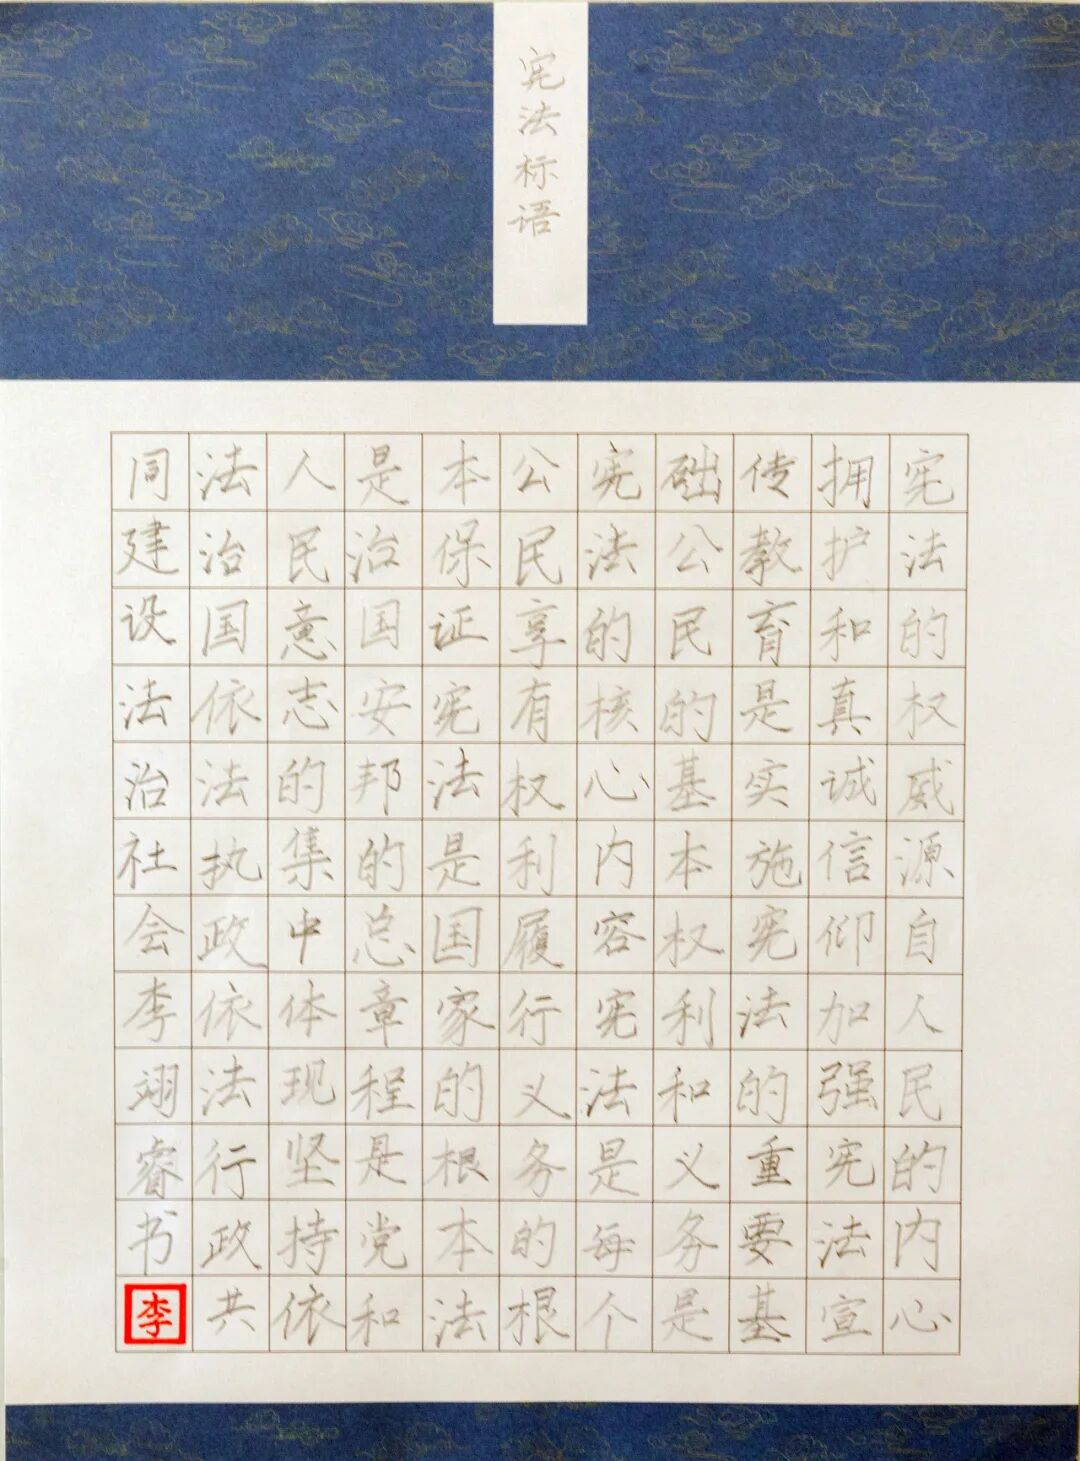 宪法标语
宪法的权威源自人民的内心
拥护和真诚信仰加强宪法宣
传教育是实施宪法的重要基
础公民的基本权利和义务是
宪法的核心内容宪法是每个
公民享有权利履行义务的根
本保证宪法是国家的根本法
是治国安邦的总章程是党和
人民意志的集中体现坚持依
法治国依法执政依法行政共
同建设法治社会李翊睿书
李